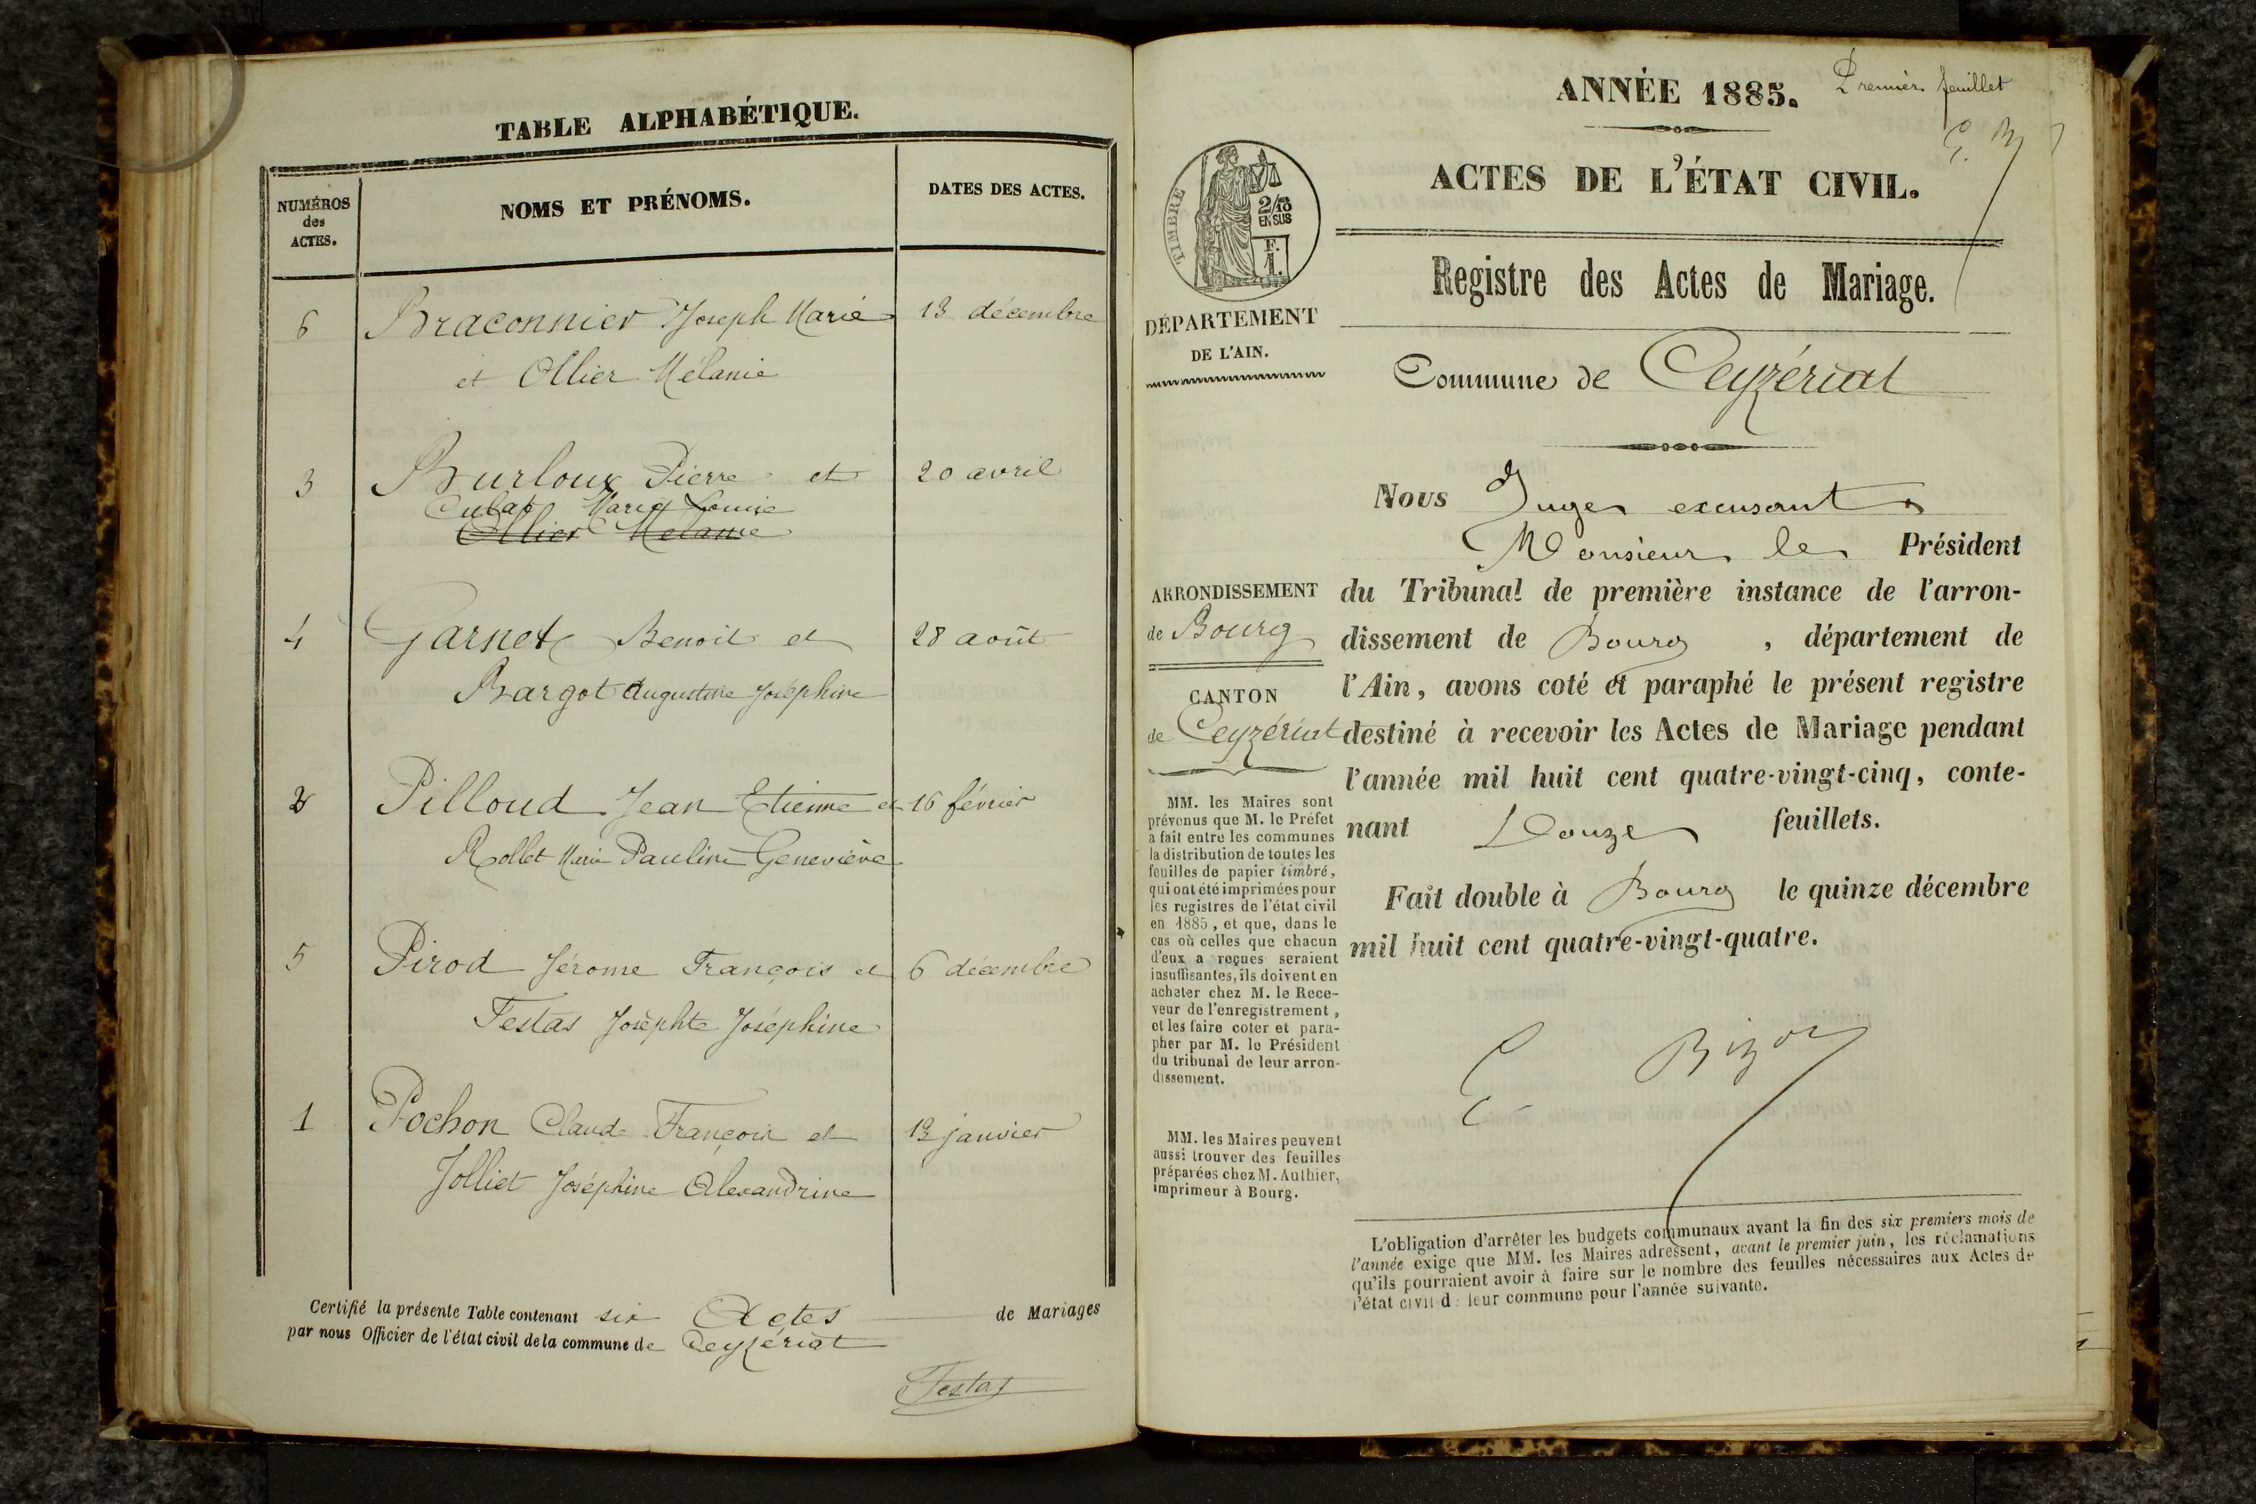 TABLE ALPHABÉTIQUE.
NUMÉROS
des
ACTES.
NOMS ET PRÉNOMS.
DATES DES ACTES.
6 Braconnier Joseph Marie 13 décembre
et Ollier Mélanie
3 Burloux Pierre et 20 avril
Marie Louise
Ollier Mélanie
4 Garnet Benoit et 28 août
Bargot Augustine Joséphine
2 Pilloud Jean Etienne et 16 février
Rollet Marie Pauline Geneviève
5 Pirod Jérome François et 6 décembre
Festas Josèphte Joséphine
1 Pochon Claude François et 13 janvier
Jolliet Joséphine Alexandrine
Certifié la présente Table contenant six Actes de Mariages
par nous Officier de l'état civil de la commune de Ceyzériat
Festas
Premier feuillet
E. B
ANNÉE 1885.
ACTES DE L'ÉTAT CIVIL.
TIMBRE
2/10
EN SUS
F.
1.
DÉPARTEMENT
DE L'AIN.
Registre des Actes de Mariage.
Commune de Ceyzériat
ARRONDISSEMENT
de Bourg
CANTON
de Ceyzériat
MM. les Maires sont
prévenus que M. le Préfet
a fait entre les communes
la distribution de toutes les
feuilles de papier timbré,
qui ont été imprimées pour
les registres de l'état civil
en 1885, et que, dans le
cas où celles que chacun
d'eux a reçues seraient
insuffisantes, ils doivent en
acheter chez M. le Rece-
veur de l'enregistrement,
et les faire coter et para-
pher par M. le Président
du tribunal de leur arron-
dissement.
MM. les Maires peuvent
aussi trouver des feuilles
préparées chez M. Authier,
imprimeur à Bourg.
Nous Juge excusant
Monsieur le Président
du Tribunal de première instance de l'arron-
dissement de Bourg , département de
l'Ain, avons coté et paraphé le présent registre
destiné à recevoir les Actes de Mariage pendant
l'année mil huit cent quatre-vingt-cinq, conte-
nant Douze feuillets.
Fait double à Bourg le quinze décembre
mil huit cent quatre-vingt-quatre.
E Bizot
L'obligation d'arrêter les budgets communaux avant la fin des six premiers mois de
l'année exige que MM. les Maires adressent, avant le premier juin, les réclamations
qu'ils pourraient avoir à faire sur le nombre des feuilles nécessaires aux Actes de
l'état civil de leur commune pour l'année suivante.